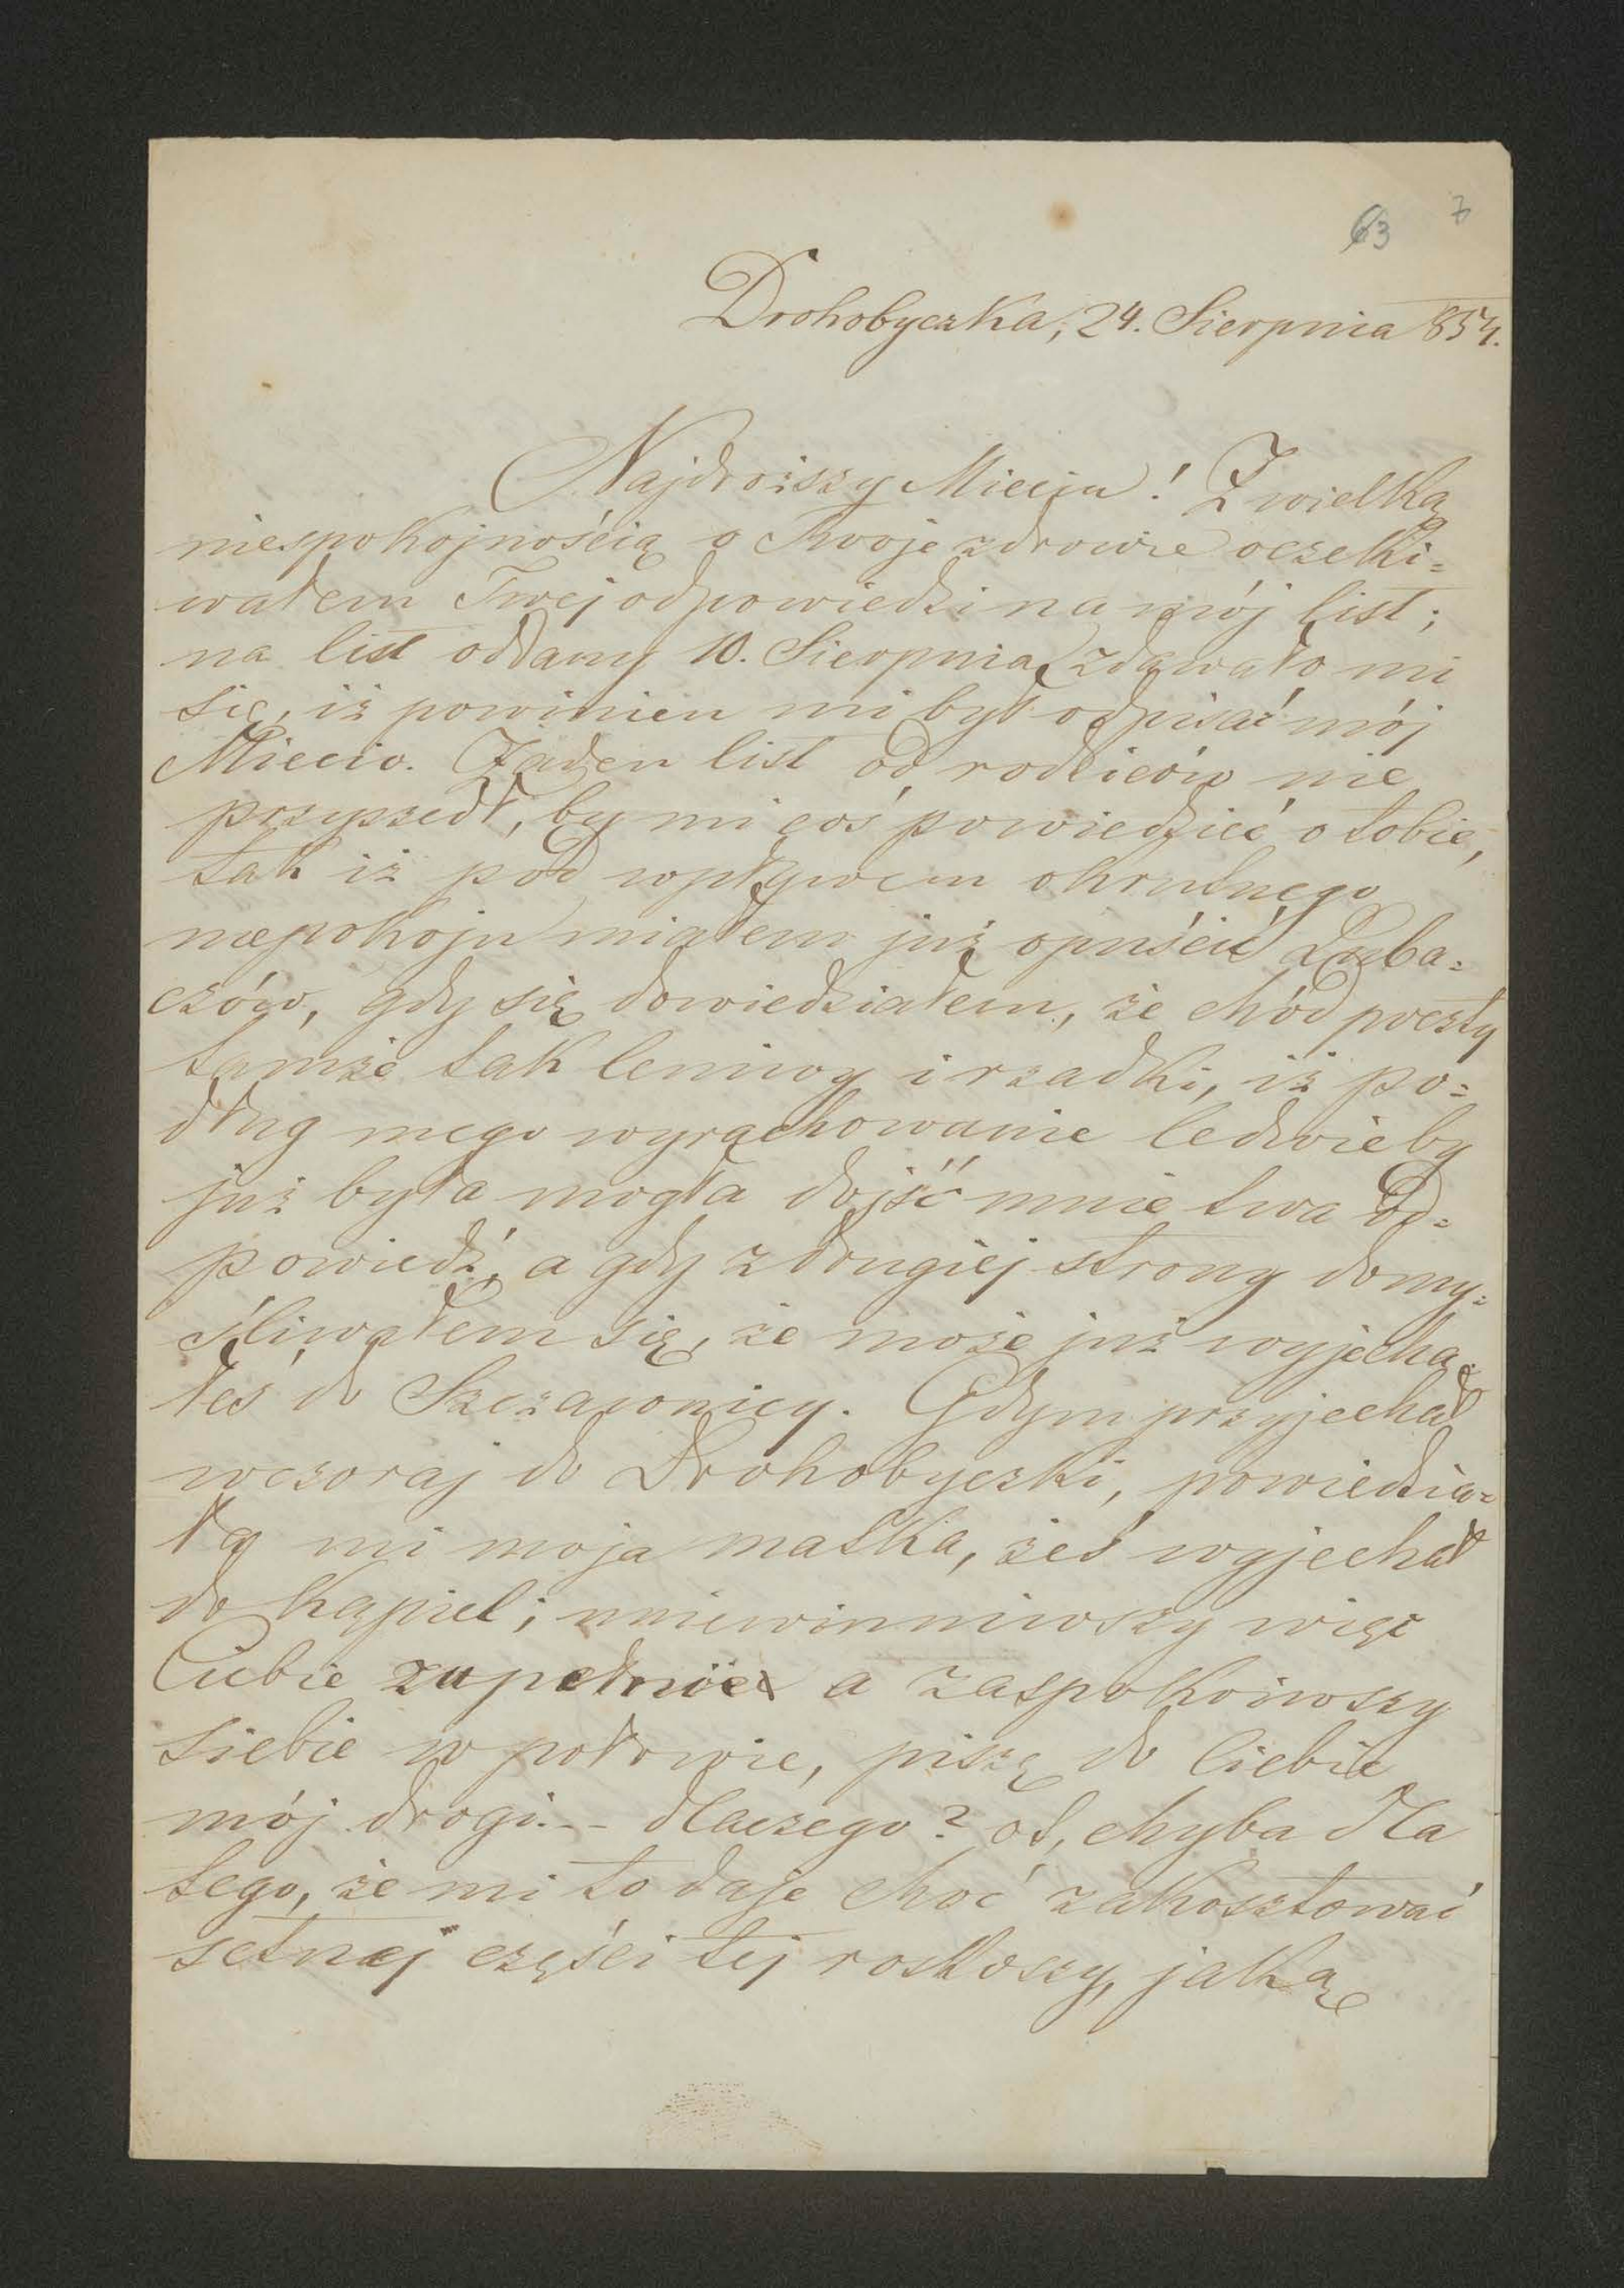 63 7
Drohobyczka, 24. Sierpnia 854.
Najdroższy Mieciu! Z wielką
niespokojnością o Twoje zdrowie oczeki=
wałem Twej odpowiedzi na mój list;
na list oddany 10. Sierpnia zdawało mi
się, iż powinien mi był odpisać mój
Miecio. Żaden list od rodziców nie
przyszedł, by mi coś powiedzieć o tobie,
tak iż pod wpływem okrutnego
niepokoju miałem już opuścić Luba=
czów, gdy się dowiedziałem, że chód poczty
tamże tak leniwy i rzadki, iż po=
dług mego wyrachowanie ledwie by
już była mogła dojść mnie twa od=
powiedź, a gdy z drugiej strony domy=
śliwałem się, że może już wyjecha=
łeś do Szczawnicy. Gdym przyjechał
wczoraj do Drohobyczki, powiedzia=
ła mi moja matka, żeś wyjechał
do kąpieli; uniewinniwszy więc
Ciebie zupełnie a zaspokoiwszy
siebie w połowie, piszę do Ciebie
mój drogi. -- dlaczego? ot, chyba dla
tego, że mi to daje choć zakosztować
setnej części tej roskoszy, jaką